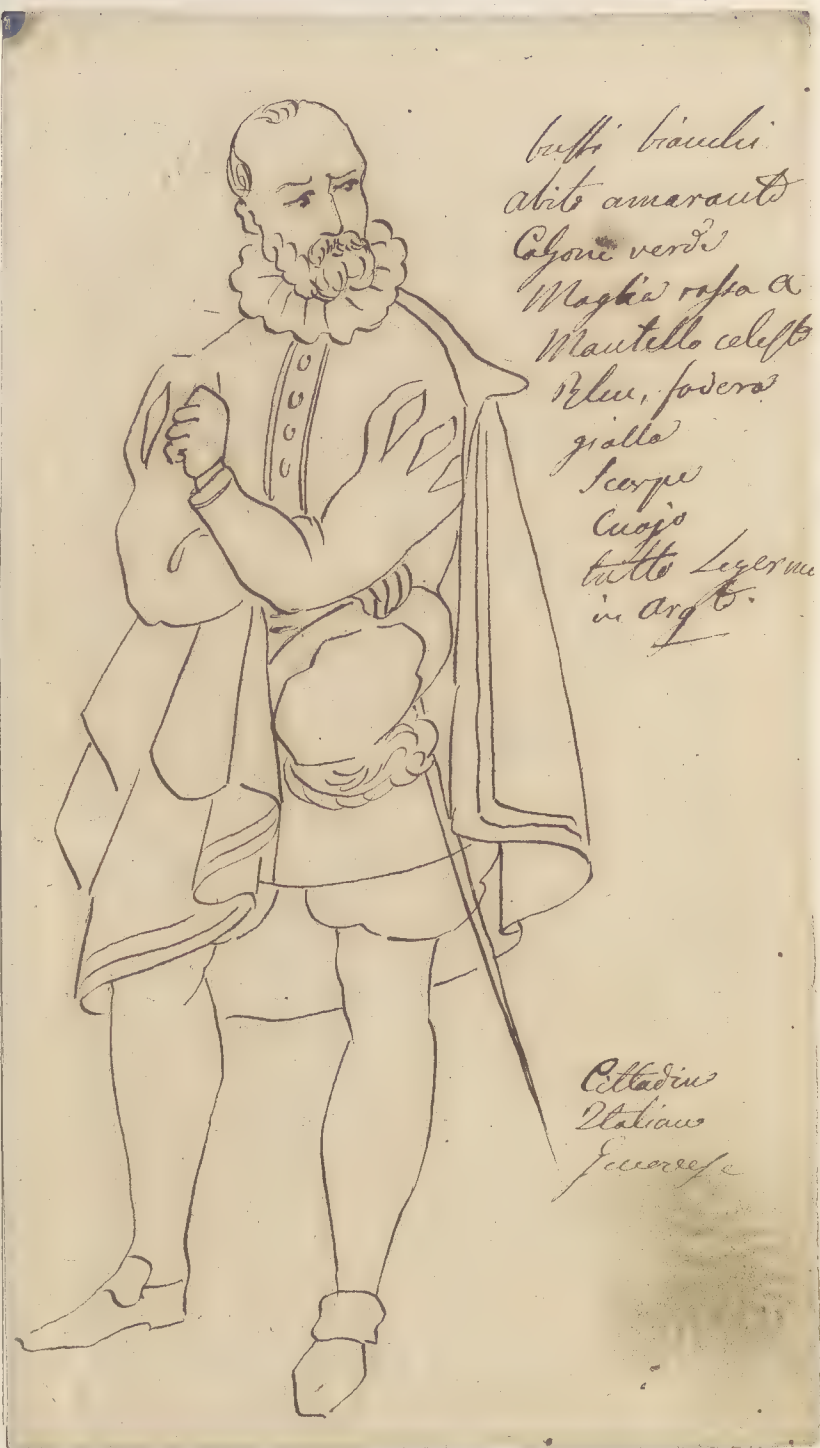 buffi bianchi
abito amaranto
Calzone verde
Maglia rossa
Mantello celeste
Bleu, fodera
gialla
Scarpe
Cuojo
tutto
in Arg.to
Cittadino
Italiano
Genovese